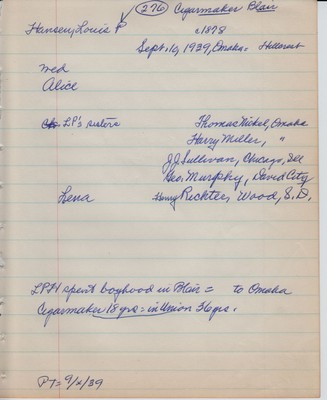 (276) Cigarmaker Blair
Hansen, Louis P c1878
Sept. 10, 1939, Omaha = Hillcrest
wed
Alice
LP's sisters Thomas Nickel, Omaha
Harry Miller, "
J.J. Sullivan, Chicago, Ill
Geo. Murphy, David City
Lena Henry Rickter, Wood, S.D.
LPH spent boyhood in Blair = to Omaha
Cigarmaker 18 yrs = in Union 36 yrs.
PT = 9/ /39